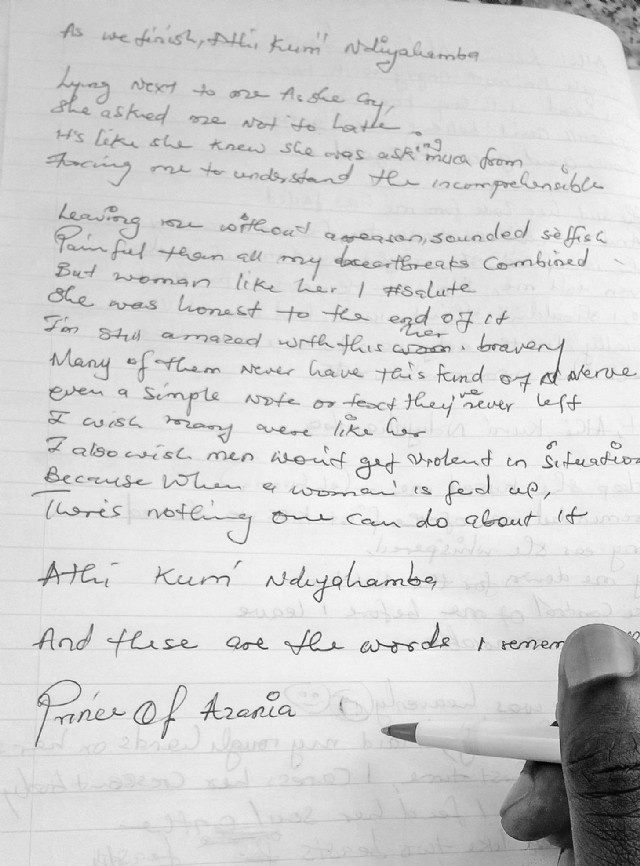 As we finish, Athi Kum' Ndiyahamba
Lying Next to me As she Cry,
She asked me Not to hate.
It's like she knew she was asking much from
Forcing me to understand the incomprehensible
Leaving me without a reason, sounded selfish
Painful than all my heartbreaks combined
But woman like her I #salute
She was honest to the end of it
I'm still amazed with this her bravery
Many of them never have this kind of Nerve
even a simple note or text they've never left
I wish many were like her
I also wish men won't get violent in situation
Because when a woman is fed up,
There's nothing one can do about it
Athi Kum' Ndiyahamba,
And these are the words I remem
Prince Of Azania